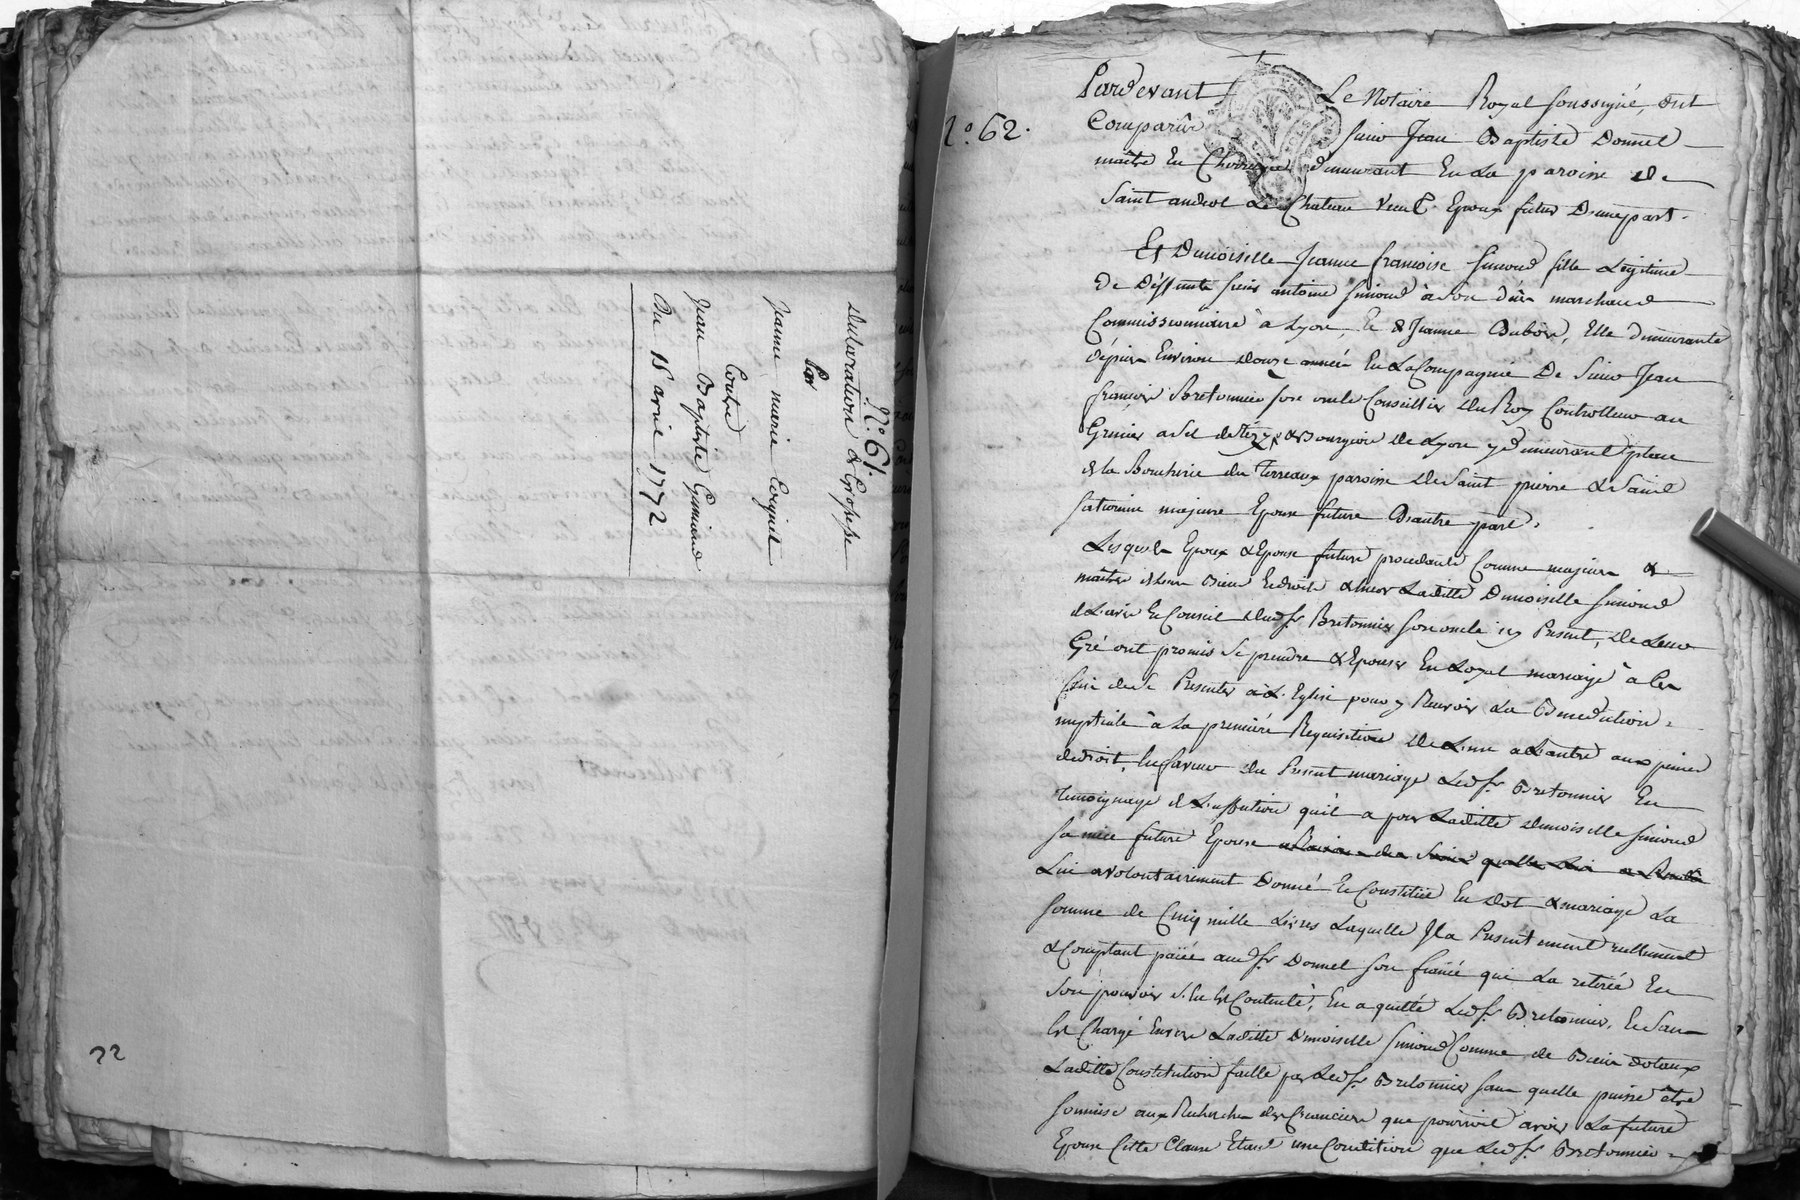 N.° 61.
Declaration de Grossesse
Par
Jeanne marie Coignet
Contre
Jean Baptiste Gimiand
Du 18 avril 1772
22
N.° 62.
Pardevant Le Notaire Royal soussigné, ont
Comparû sieur Jean Baptiste Donnet
maître En Chirurgie demeurant En La paroisse de
Saint andeol Le Chateau Veuf Epoux futur D'une part.
Et Dmoiselle Jeanne françoise Simond fille Légitime
De Deffunts sieur antoine Simond à son décès marchand
Commissionnaire à Lyon, Et de Jeanne Dubois, Elle demeurante
dépuis Environ douze années En La Compagnie De Sieur Jean
françois Bretonnier son oncle Conseiller du Roy Controlleur au
Grenier a sel de & Bourgeois de Lyon y demeurant place
de la Boucherie des Terreaux paroisse de Saint pierre & Saint
saturnin majeure Epouse future D'autre part.
Lesquels Epoux & Epouse future procedants Comme majeurs &
maîtres de Leurs Biens & droits & encor Laditte Dmoiselle Simond
de L'avis Et Conseil dudt Sr. Bretonnier son oncle icy Present, De Leur
Gré ont promis se prendre & Epouser En Loyal mariage à ces
fins de se Presenter à L'Eglise pour y Recevoir La Benediction
nuptiale à La premiére Requisition de L'une a L'autre aux peines
de droit, En faveur du Present mariage Ledt Sr. Bretonnier En
temoignage de L'affection qu'il a pour Laditte dmoiselle Simond
sa niéce future Epouse
Lui a volontairement Donné Et Constitué En dot & mariage La
somme de Cinq mille Livres Laquelle Il a Presentement réellement
& Comptant païée audt Sr Donnet son fiancé qui La retirée En
son pouvoir s'En Est Contenté, En a quitté Ledt Sr. Bretonnier, Et s'en
Est Chargé Envers Laditte Dmoiselle Simond Comme de Biens dotaux
Laditte Constitution faitte par Ledt Sr Bretonnier sans quelle puisse être
soumise aux Recherches des Creanciers que pourroit avoir La future
Epouse Cette Clause Etant une Condition que Ledt Sr Bretonnier